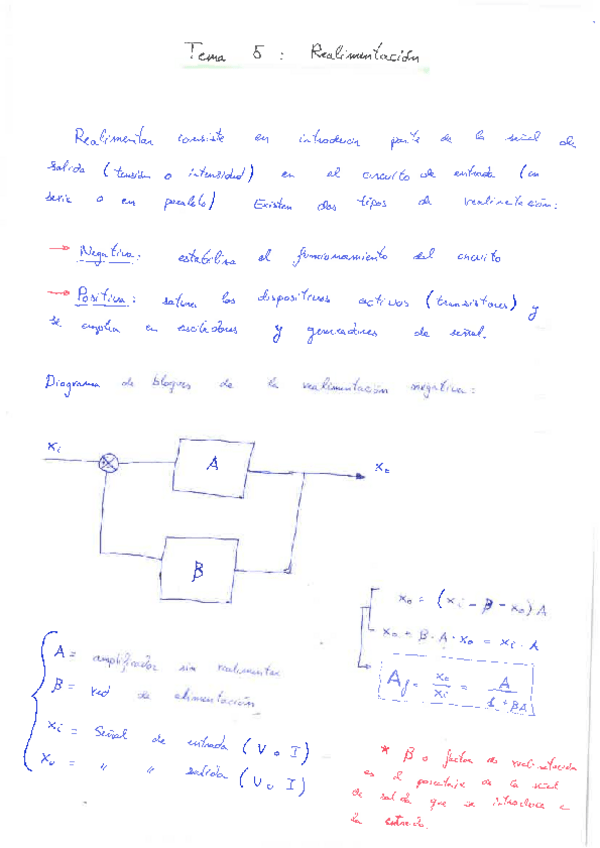 Tema 5 : Realimentación
Realimentar consiste en introducir parte de la señal de
salida (tensión o intensidad) en el circuito de entrada (en
serie o en paralelo) Existen dos tipos de realimentación:
→ Negativa: estabiliza el funcionamiento del circuito
→ Positiva: satura los dispositivos activos (transistores) y
se emplea en osciladores y generadores de señal.
Diagrama de bloques de la realimentación negativa:
xi
A
xo
β
xo = (xi - β - xo) A
xo + β · A · xo = xi · A
Af = xo/xi = A/(1 + βA)
A = amplificador sin realimentar
β = red de alimentación
xi = Señal de entrada (V o I)
xo = " " salida (V o I)
* β o factor de realimentación
es el porcentaje de la señal
de salida que se introduce a
la entrada.